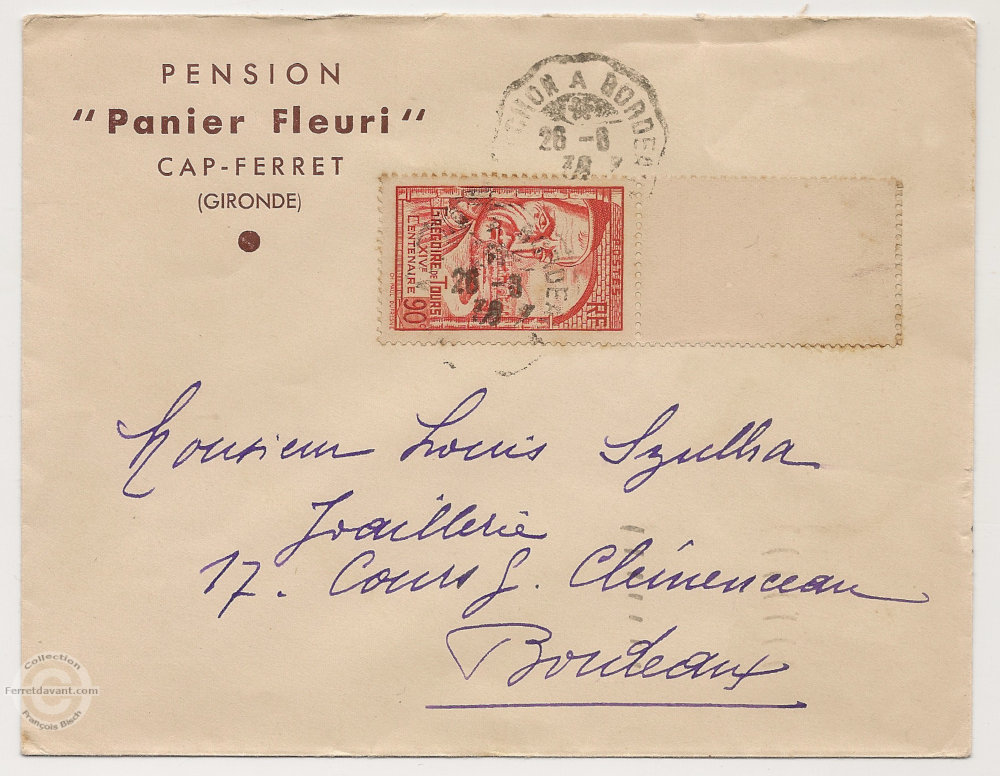 PENSION
"Panier Fleuri"
CAP-FERRET
(GIRONDE)
A BORDE
26 -8
GRÉGOIRE DE TOURS
XIVᴱ
CENTENAIRE
90ᶜ
26 -8
Monsieur Louis Szulha
Joaillerie
17. Cours G. Clémenceau
Bordeaux
Collection
Ferretdavant.com
François Bisch